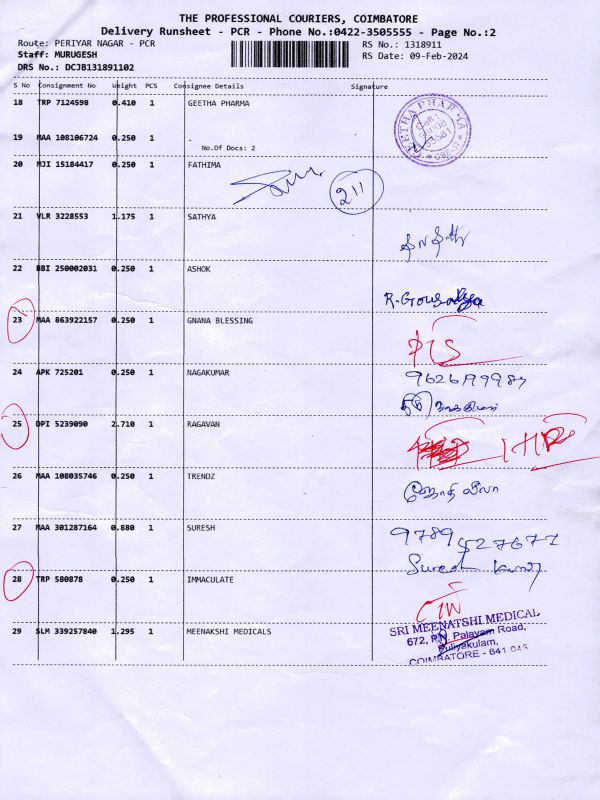 THE PROFESSIONAL COURIERS, COIMBATORE
Delivery Runsheet - PCR - Phone No.:0422-3505555 - Page No.:2
Route: PERIYAR NAGAR - PCR RS No.: 1318911
Staff: MURUGESH RS Date: 09-Feb-2024
DRS No.: DCJB131891102
S No Consignment No Weight PCS Consignee Details Signature
18 TRP 7124598 0.410 1 GEETHA PHARMA
GEETHA PHAR
19 MAA 108106724 0.250 1 -
No.Of Docs: 2
20 MJI 15184417 0.250 1 FATHIMA
211
21 VLR 3228553 1.175 1 SATHYA
22 BBI 250002031 0.250 1 ASHOK
23 MAA 863922157 0.250 1 GNANA BLESSING
24 APK 725201 0.250 1 NAGAKUMAR
25 DPI 5239090 2.710 1 RAGAVAN
26 MAA 108035746 0.250 1 TRENDZ
ஜோதி லீலா
27 MAA 301287164 0.880 1 SURESH
9789527671
Suresh Kumar
28 TRP 580878 0.250 1 IMMACULATE
29 SLM 339257840 1.295 1 MEENAKSHI MEDICALS
SRI MEENATSHI MEDICAL
672, P.N. Palayam Road,
Puliyakulam,
COIMBATORE - 641 045